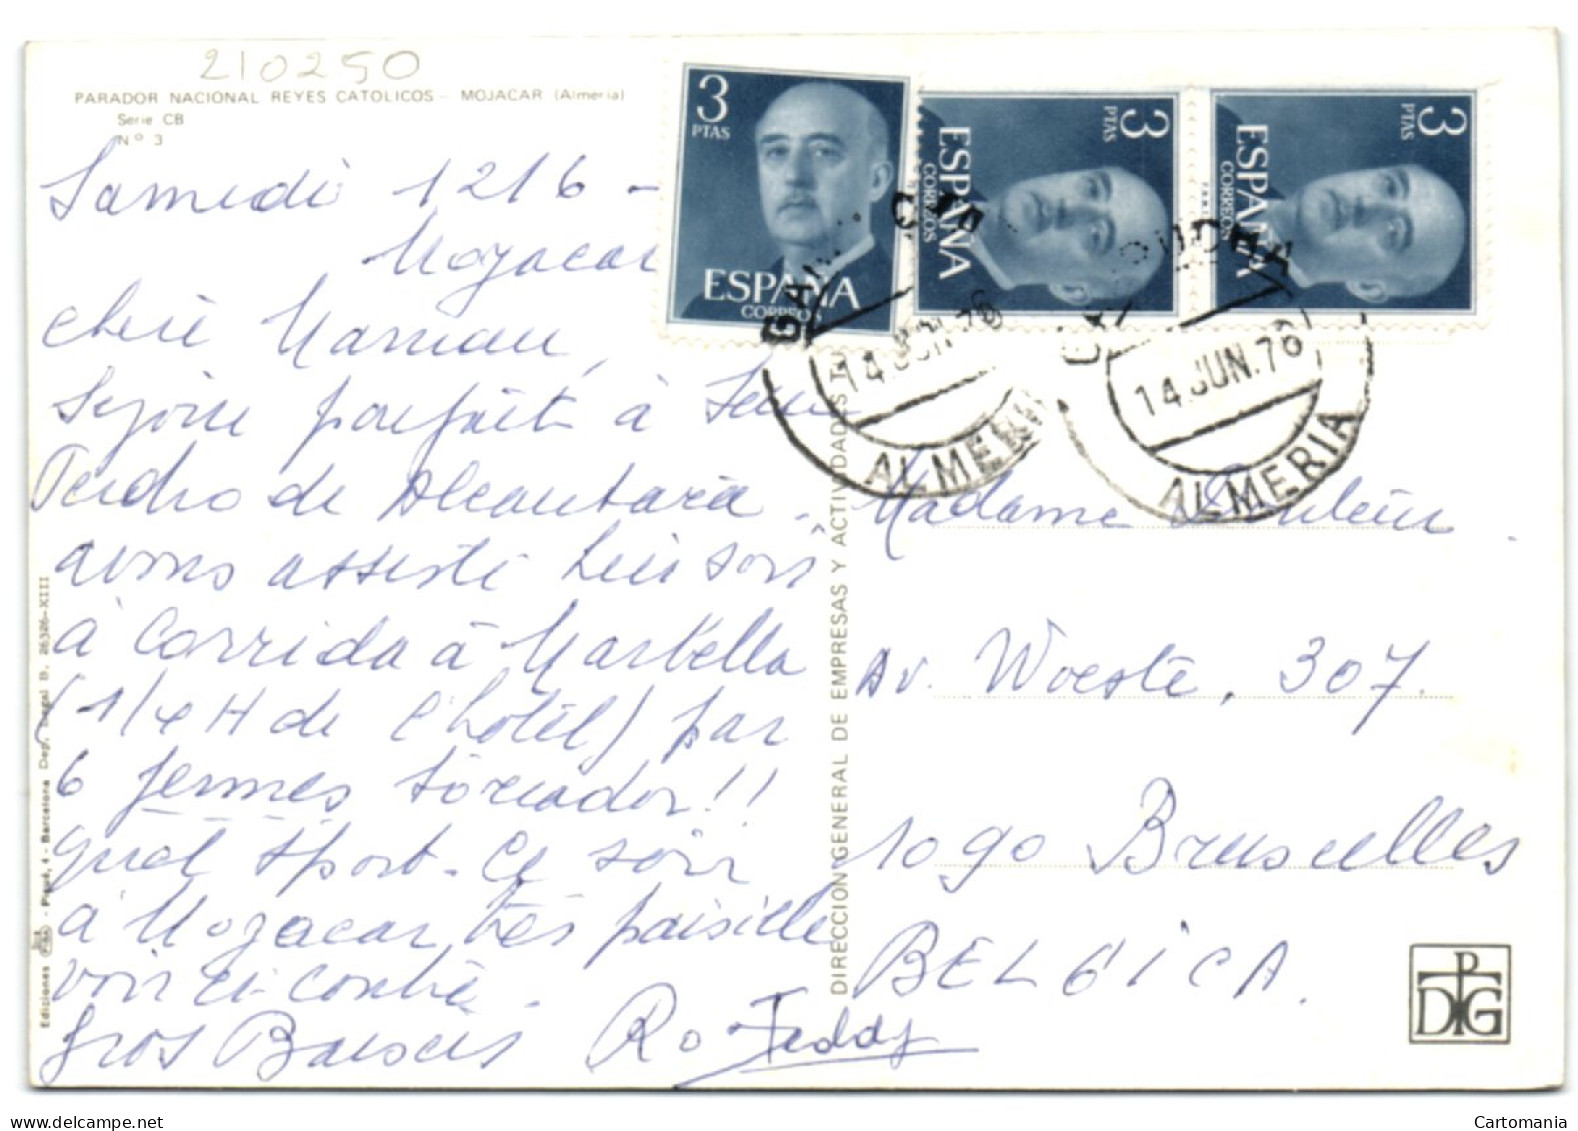 210250
PARADOR NACIONAL REYES CATOLICOS - MOJACAR (Almeria)
Serie CB
Nº 3
Samedi 12/6 -
Mojacar
Chère Maman,
Séjour parfait à San
Pedro de Alcantara.
avons assisté hier soir
à corrida à Marbella
(1/4 H de l'hotel) par
6 femmes toreador!!
quel sport. Ce soir
à Mojacar, très paisible
voir ci-contre.
Gros Baisers Ro Teddy
3
PTAS
ESPAÑA
CORREOS
3
PTAS
ESPAÑA
CORREOS
3
PTAS
ESPAÑA
CORREOS
14.JUN.76
ALMERIA
14.JUN.76
ALMERIA
Madame
Av. Woeste, 307.
1090 Bruxelles
BELGICA.
DIRECCION GENERAL DE EMPRESAS Y ACTIVIDADES
Ediciones - Barcelona Dep. Legal B. 26326-XIII
DPG
Cartomania